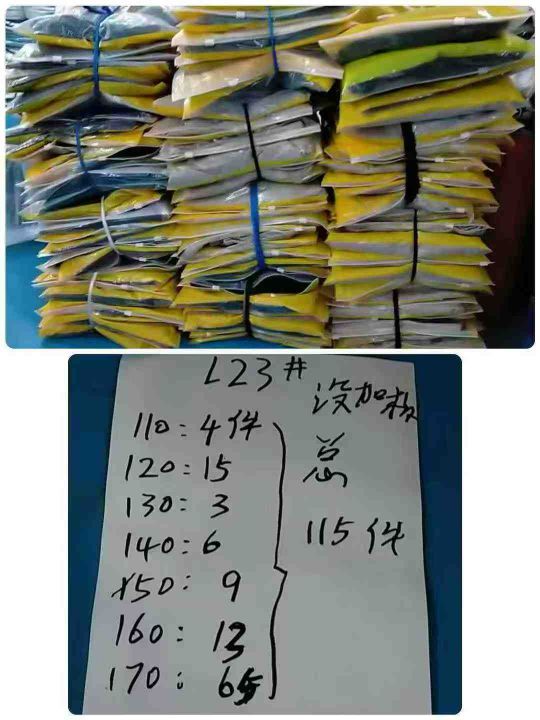 L23#
没加
110:4件
120:15
总
130:3
115件
140:6
150:9
160:13
170:65